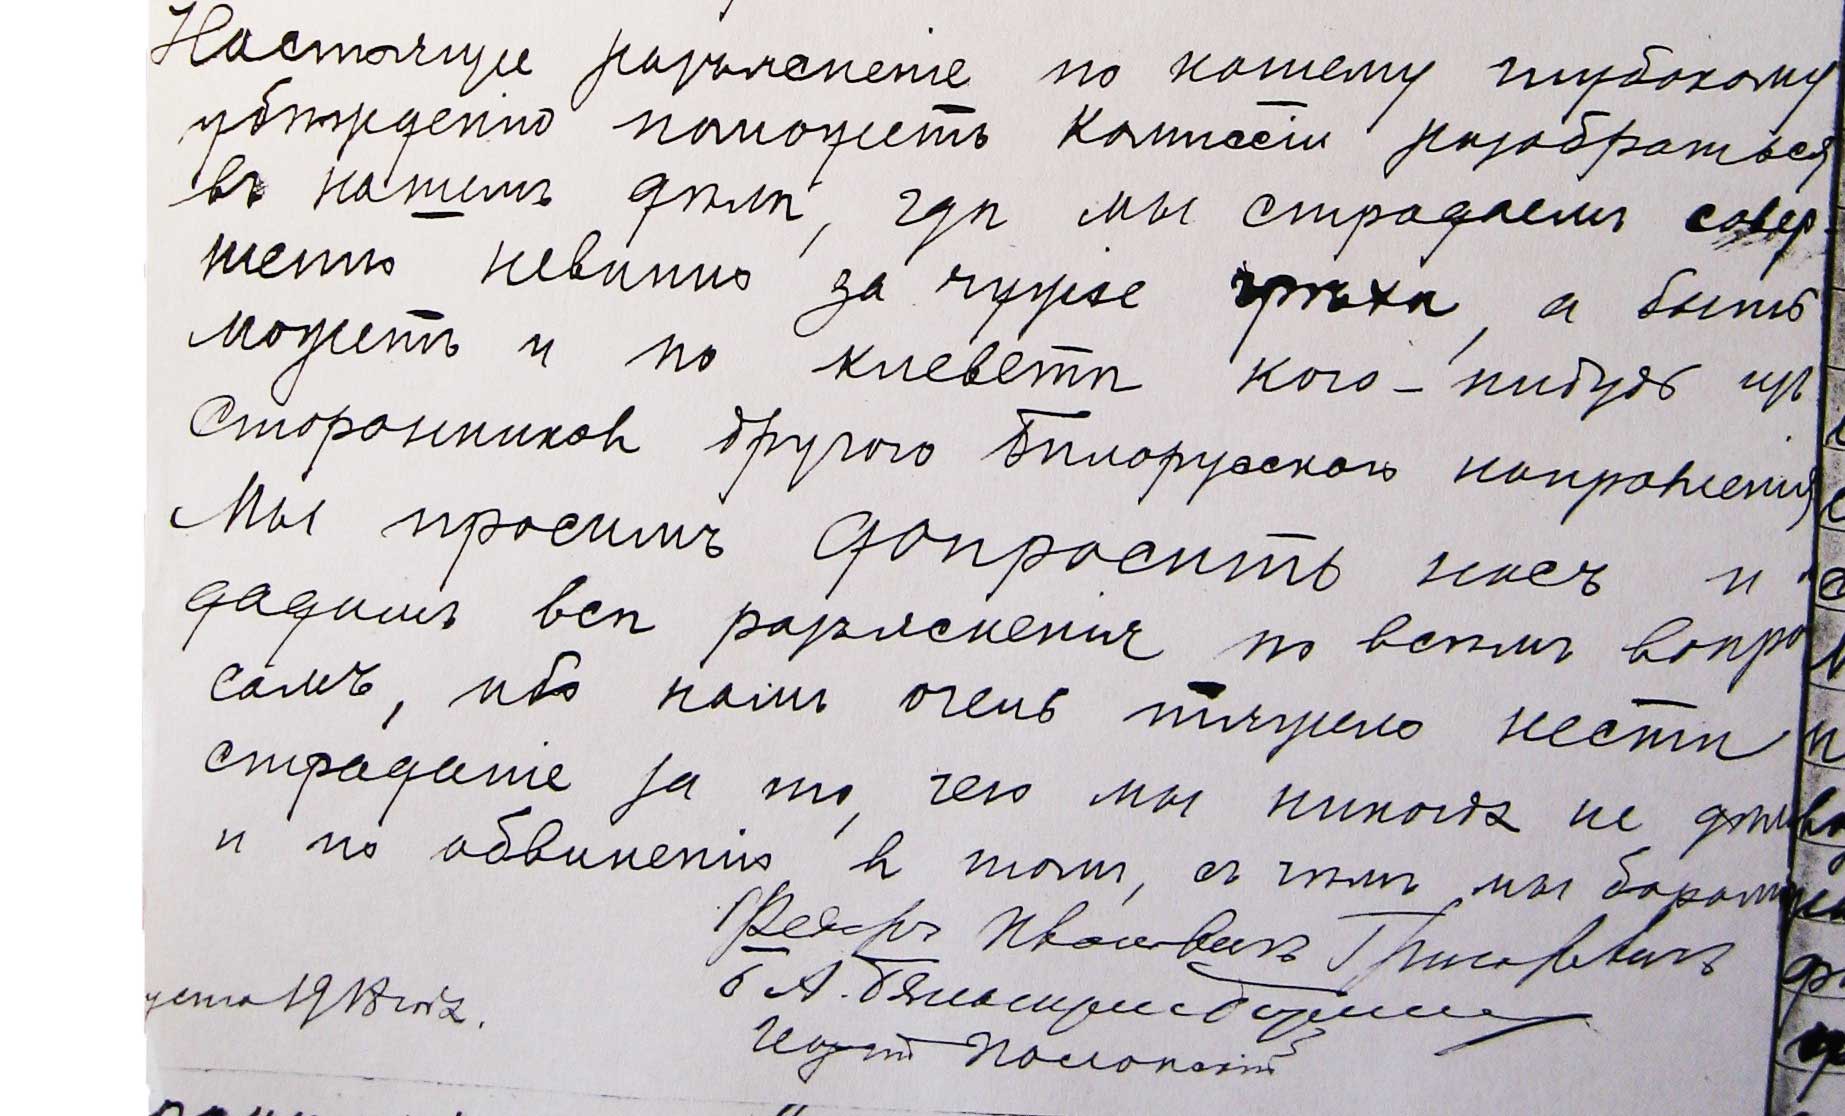 Настоящее разъясненіе по нашему глубокому
убѣжденію поможетъ Комиссіи разобраться
въ нашемъ дѣлѣ, гдѣ мы страдаемъ совер-
шенно невинно за чужіе грѣхи, а быть
можетъ и по клеветѣ кого-нибудь изъ
сторонниковъ другого Бѣлорусскаго направленія
Мы просимъ допросить насъ и
дадимъ всѣ разъясненія по всѣмъ вопро
самъ, ибо намъ очень тяжело нести
страданіе за то, чего мы никогда не
и по обвиненію въ томъ, съ чѣмъ мы
Иванъ Григоревичъ
Б А.
1918 года.